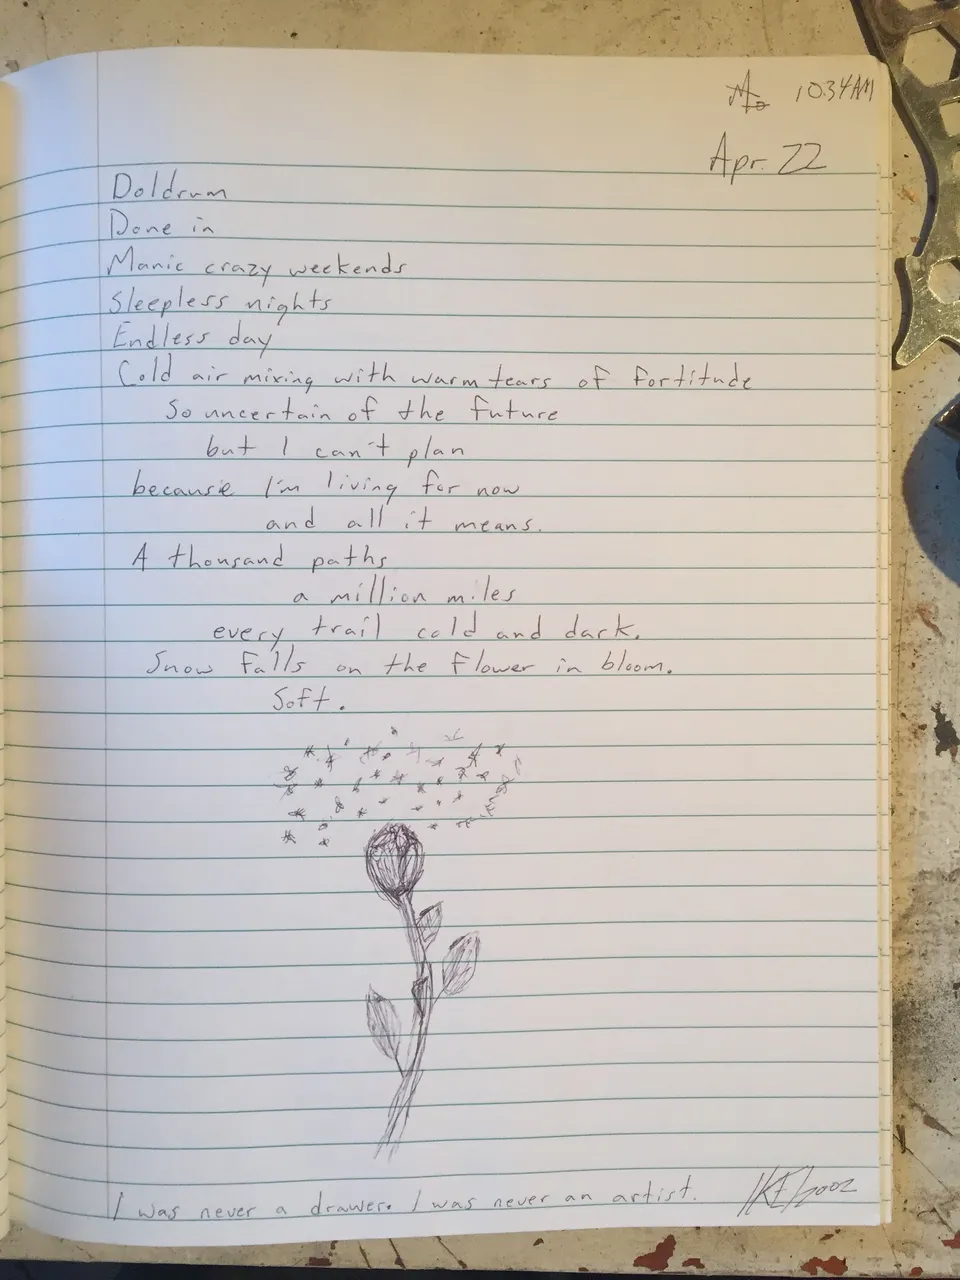 10:34AM
Apr. 22
Doldrum
Done in
Manic crazy weekends
Sleepless nights
Endless day
Cold air mixing with warm tears of fortitude
So uncertain of the future
but I can't plan
because I'm living for now
and all it means.
A thousand paths
a million miles
every trail cold and dark.
Snow falls on the flower in bloom.
Soft.
I was never a drawer. I was never an artist.